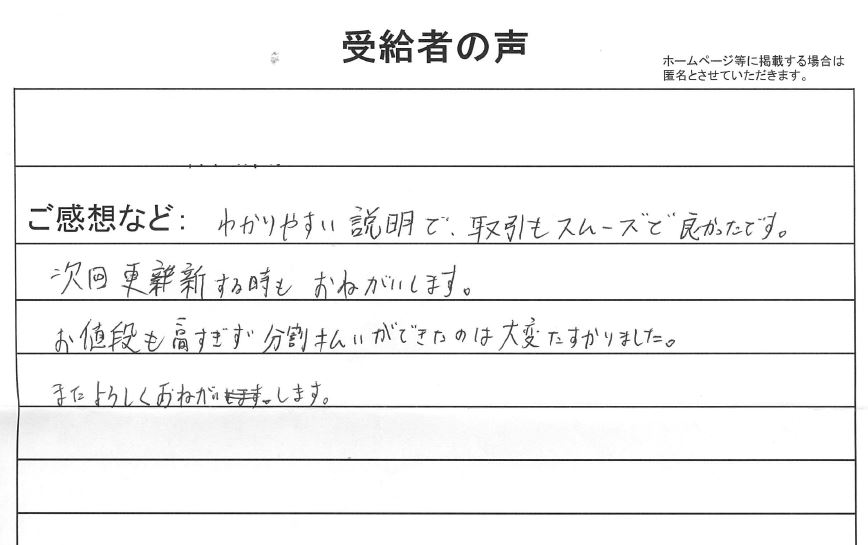 受給者の声
ホームページ等に掲載する場合は
匿名とさせていただきます。
ご感想など： わかりやすい説明で、取引もスムーズで良かったです。
次回更新する時もおねがいします。
お値段も高すぎず分割払いができたのは大変たすかりました。
またよろしくおねがいします。